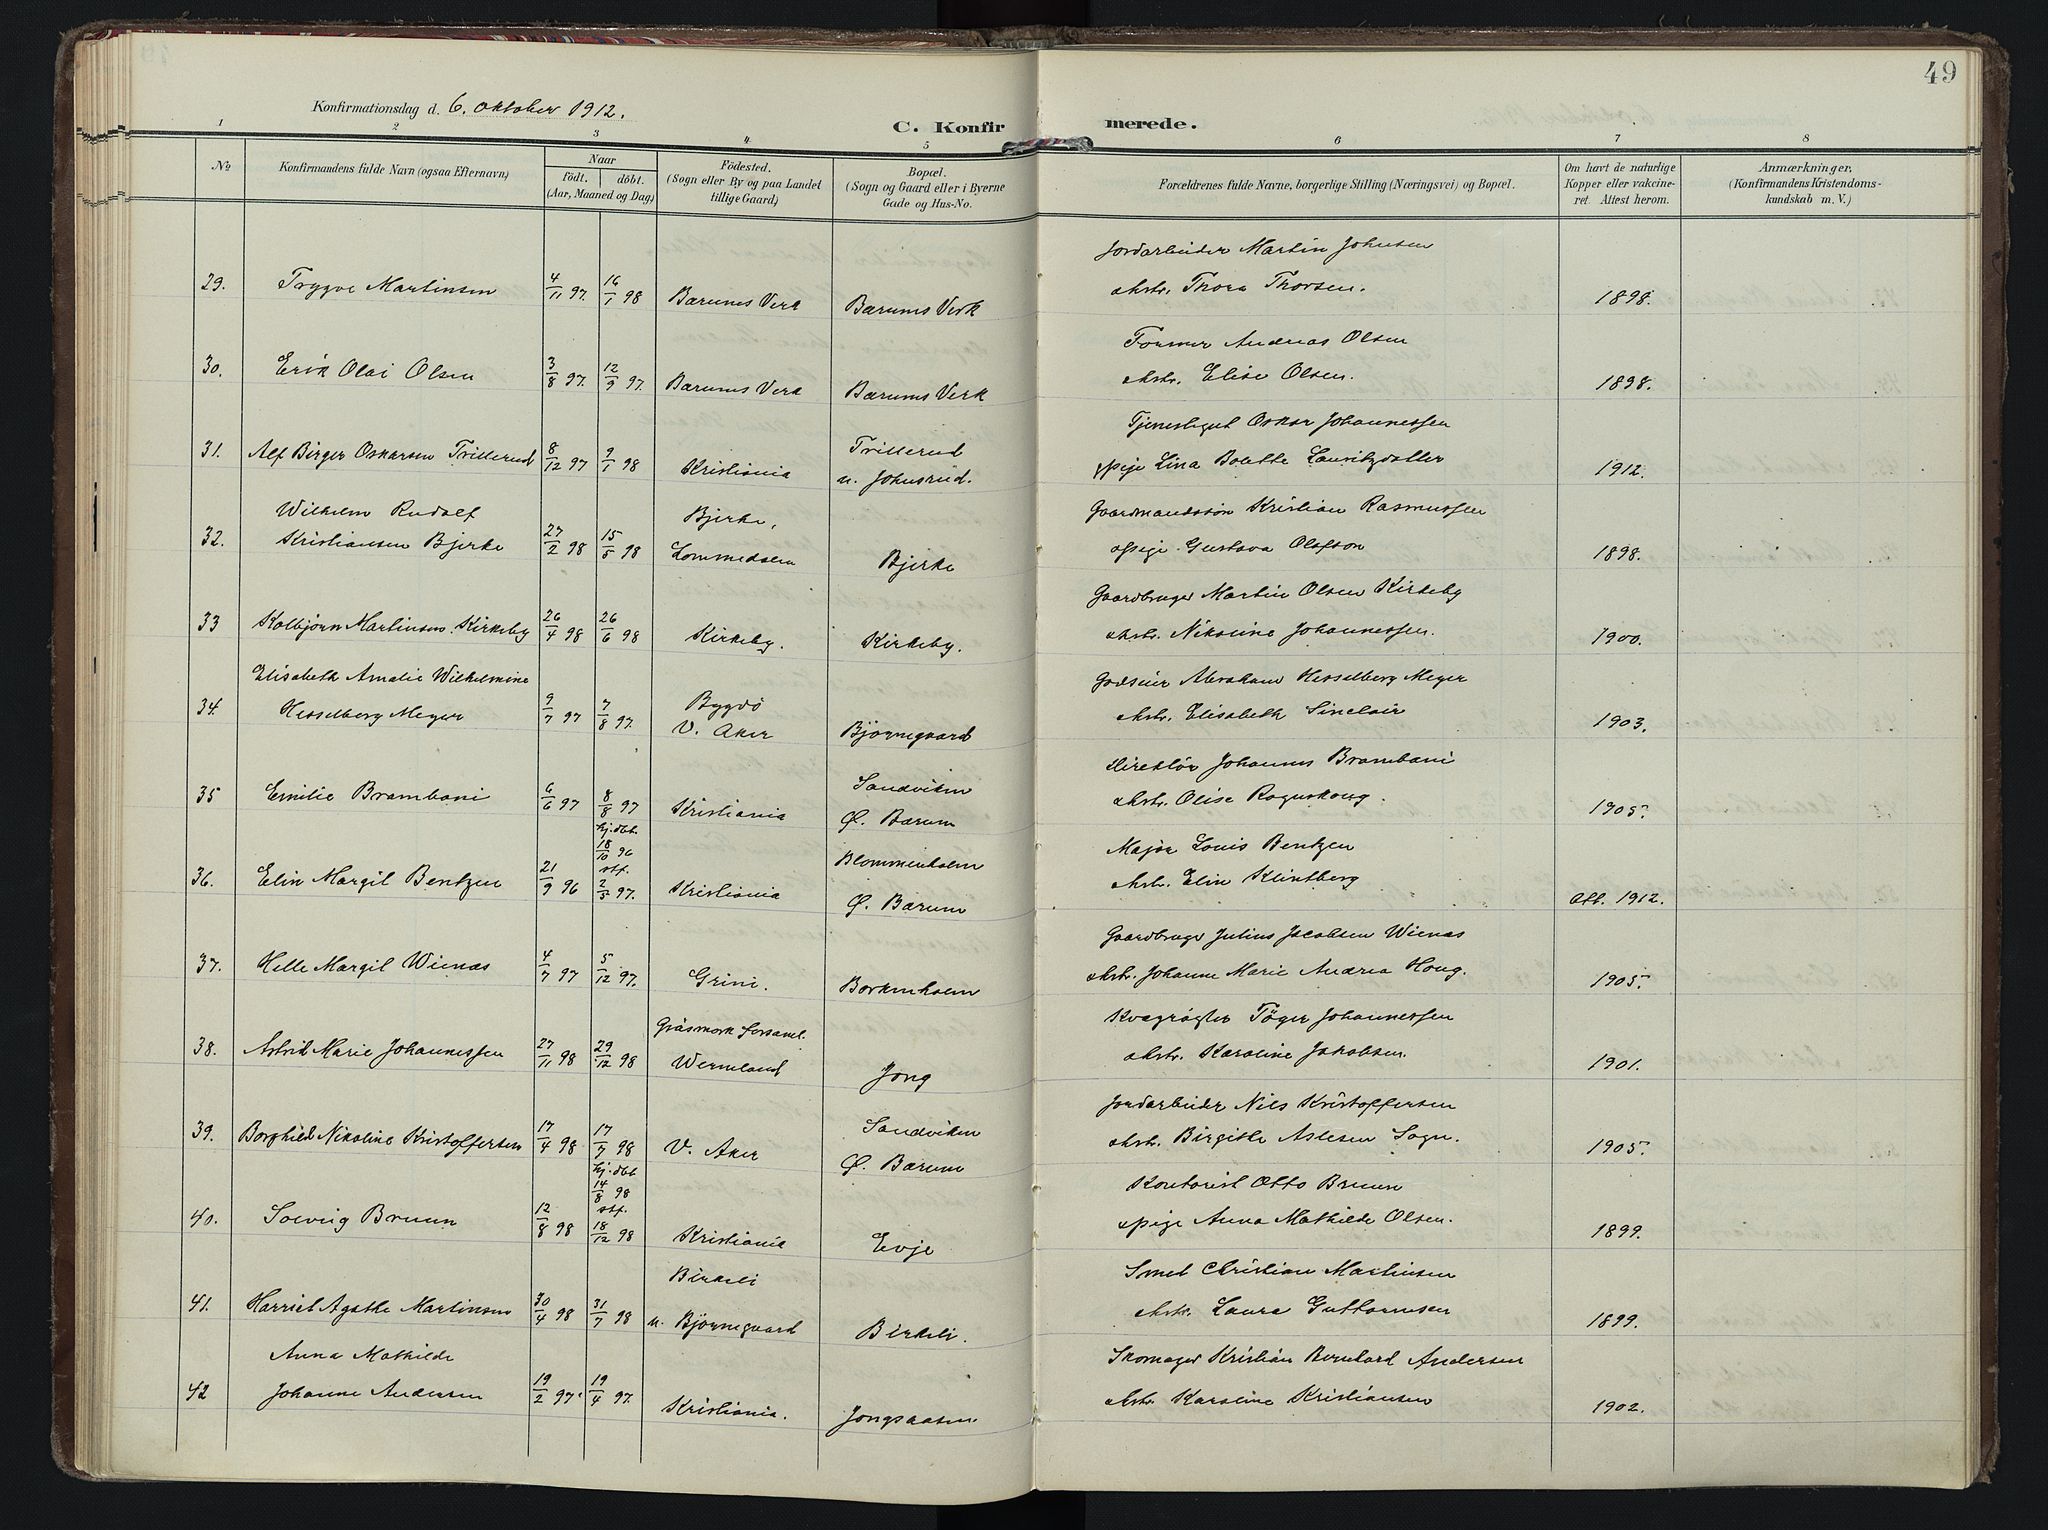 49
Konfirmationsdag d. 6. Oktober 1912.
C. Konfirmerede.
1 2 3 4 5 6 7 8
No
Konfirmandens fulde Navn (ogsaa Efternavn)
Naar
födt. döbt.
(Aar, Maaned og Dag)
Födested.
(Sogn eller By og paa Landet
tillige Gaard)
Bopæl.
(Sogn og Gaard eller i Byerne
Gade og Hus-No.
Forældrenes fulde Navne, borgerlige Stilling (Næringsvei) og Bopæl.
Om havt de naturlige
Kopper eller vakcine-
ret. Attest herom.
Anmærkninger,
(Konfirmandens Kristendoms-
kundskab m. V.)
Jordarbeider Martin Johnsen
29. Trygve Martinsen 4/11 97. 16/1 98 Bærums Verk Bærums Verk Hstr. Thora Thorsen. 1898.
Former Andreas Olsen
30. Erik Olai Olsen 3/8 97. 12/9 97. Bærums Verk Bærums Verk Hstr. Elise Olsen. 1898.
Tjenestegut Oskar Johannessen
31. Alf Birger Oskarsen Trillerud 8/12 97 9/1 98 Kristiania Trillerud
u. Johnsrud. Pige Lina Bolette Lauritzdatter 1912.
Wilhelm Rudolf Bjerke, Gaardmandssøn Kristian Rasmussen
32. Kristiansen Bjerke 27/2 98 15/5 98 Lommedalen Bjerke Pige Gustava Olofson 1898.
Gaardbruger Martin Olsen Kirkeby
33 Kolbjørn Martinsen Kirkeby 26/4 98 26/6 98 Kirkeby. Kirkeby. Hstr. Nikoline Johannessen. 1900.
Elisabeth Amalie Wilhelmine Godseier Abraham Hesselberg Meyer
34. Hesselberg Meyer 9/7 97 7/8 97. Bygdö
V. Aker Björnegaard Hstr. Elisabeth Sinclair 1903.
Direktör Johannes Brambani
35 Emilie Brambani 6/6 97 8/8 97 Kristiania Sandviken
Ø. Bærum Hstr. Olise Rognskoug. 1905.
hj.dbt.
18/10 96
stf. Major Louis Bentzen
36. Elin Margit Bentzen 21/9 96 2/5 97. Kristiania Blommenholm
Ø. Bærum Hstr. Elin Klintberg Att. 1912.
Gaardbruger Julius Jacobsen Wienas
37. Helle Margit Wienas 4/7 97 5/12 97. Grini. Borkenholm Hstr. Johanne Marie Andrea Houg. 1905.
Gräsmark Forsaml. Kvægrögter Töger Johannessen
38. Astrid Marie Johannessen 27/11 98 29/12 98 Wermland Jong Hstr. Karoline Jakobsen. 1901.
Jordarbeider Nils Kristoffersen
39. Borghild Nikoline Kristoffersen 17/4 98 17/7 98 V. Aker Sandviken
Ø. Bærum Hstr. Birgithe Aslesen Sogn. 1905.
hj.dbt
14/8 98
stf. Kontorist Otto Bruun
40. Solveig Bruun 12/8 98 18/12 98 Kristiania Evje Pige Anna Mathilde Olsen. 1899.
Birkeli Smed Christian Martinsen
41. Harriet Agathe Martinsen 30/4 98 31/7 98 u. Björnegaard Birkeli. Hstr. Laura Guttormsen 1899.
Anna Mathilde Skomager Kristian Bernhard Andersen
42 Johanne Andersen 19/2 97. 19/4 97. Kristiania. Jongsaasen. Hstr. Karoline Kristiansen 1902.